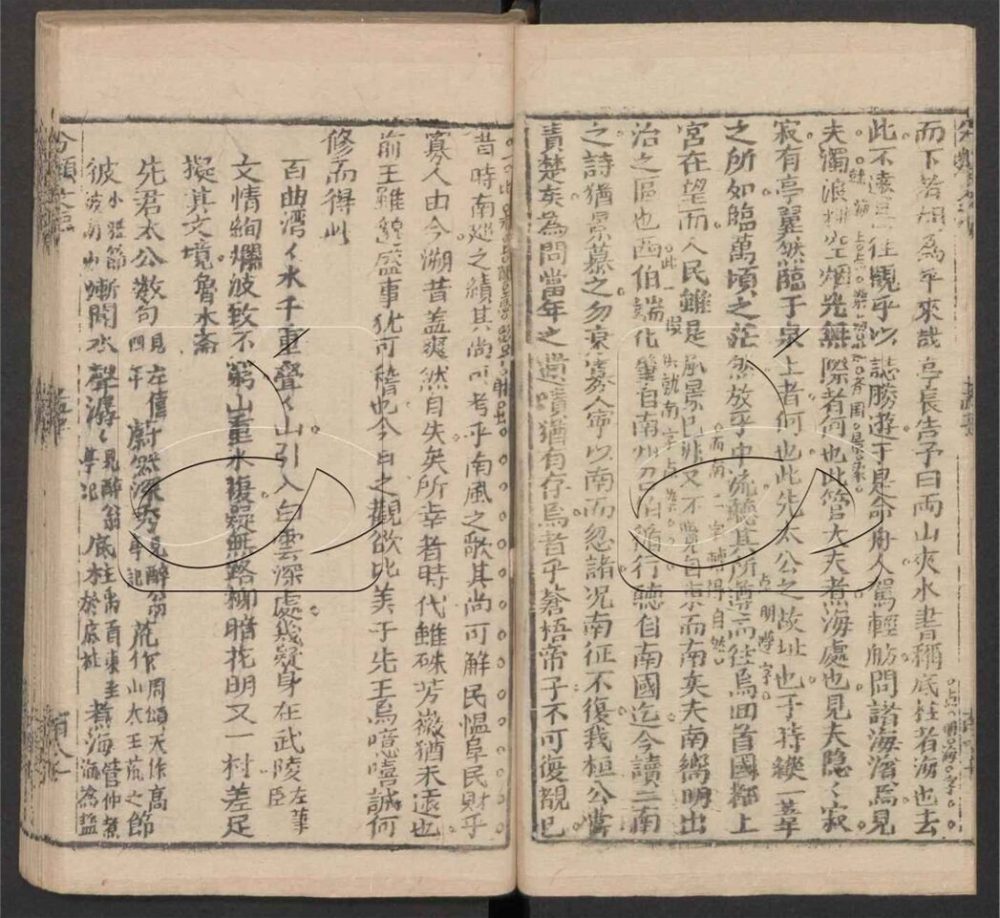 而下若為平來哉亭長告予曰両山夾水書稱底柱者海也去
此不遠一往觀乎以誌勝遊于是命舟人駕輕舫問諸海澨焉見
夫濁浪排空烟光無際者何也此管大夫煮海處也見夫隐ヽ寂
寂有亭翼然臨于泉上者何也此先太公之故址也于時縱一葦
之所如臨萬頃之茫然放乎中流聽其所導而往焉回首國都上
宮在望而人民雖是風景已非又不覺自東而南矣夫南嚮明出
治之區也西伯端化肇自南州召伯循行聽自南國迄今讀二南
之詩猶景慕之勿衰寡人寧以南而忽諸况南征不復我桓公嘗
責楚矣為問當年之遺蹟猶有存焉者乎蒼梧帝子不可復覩已
昔時南廵之績其尚可考乎南風之歌其尚可解民愠阜民財乎
寡人由今溯昔盖爽然自失矣所幸者時代雖殊芳徽猶未遠也
前王雖邈盛事犹可稽也今日之觀欲比美于先王烏噫嘻誠何
修而得此
百曲湾ヽ水千重叠ヽ山引入白雲深處幾疑身在武陵 左華臣
文情絢爛波致不窮山重水複疑無路柳暗花明又一村差足
擬其文境魯水斋
先君太公数句見左僖四年 蔚然深秀見醉翁亭記 荒作周頌天作高山大王荒之 節
彼小雅節彼南山 漸聞水聲潺ヽ見醉翁亭記 底柱禹貢東至於底柱 煮海管仲煮海為盐